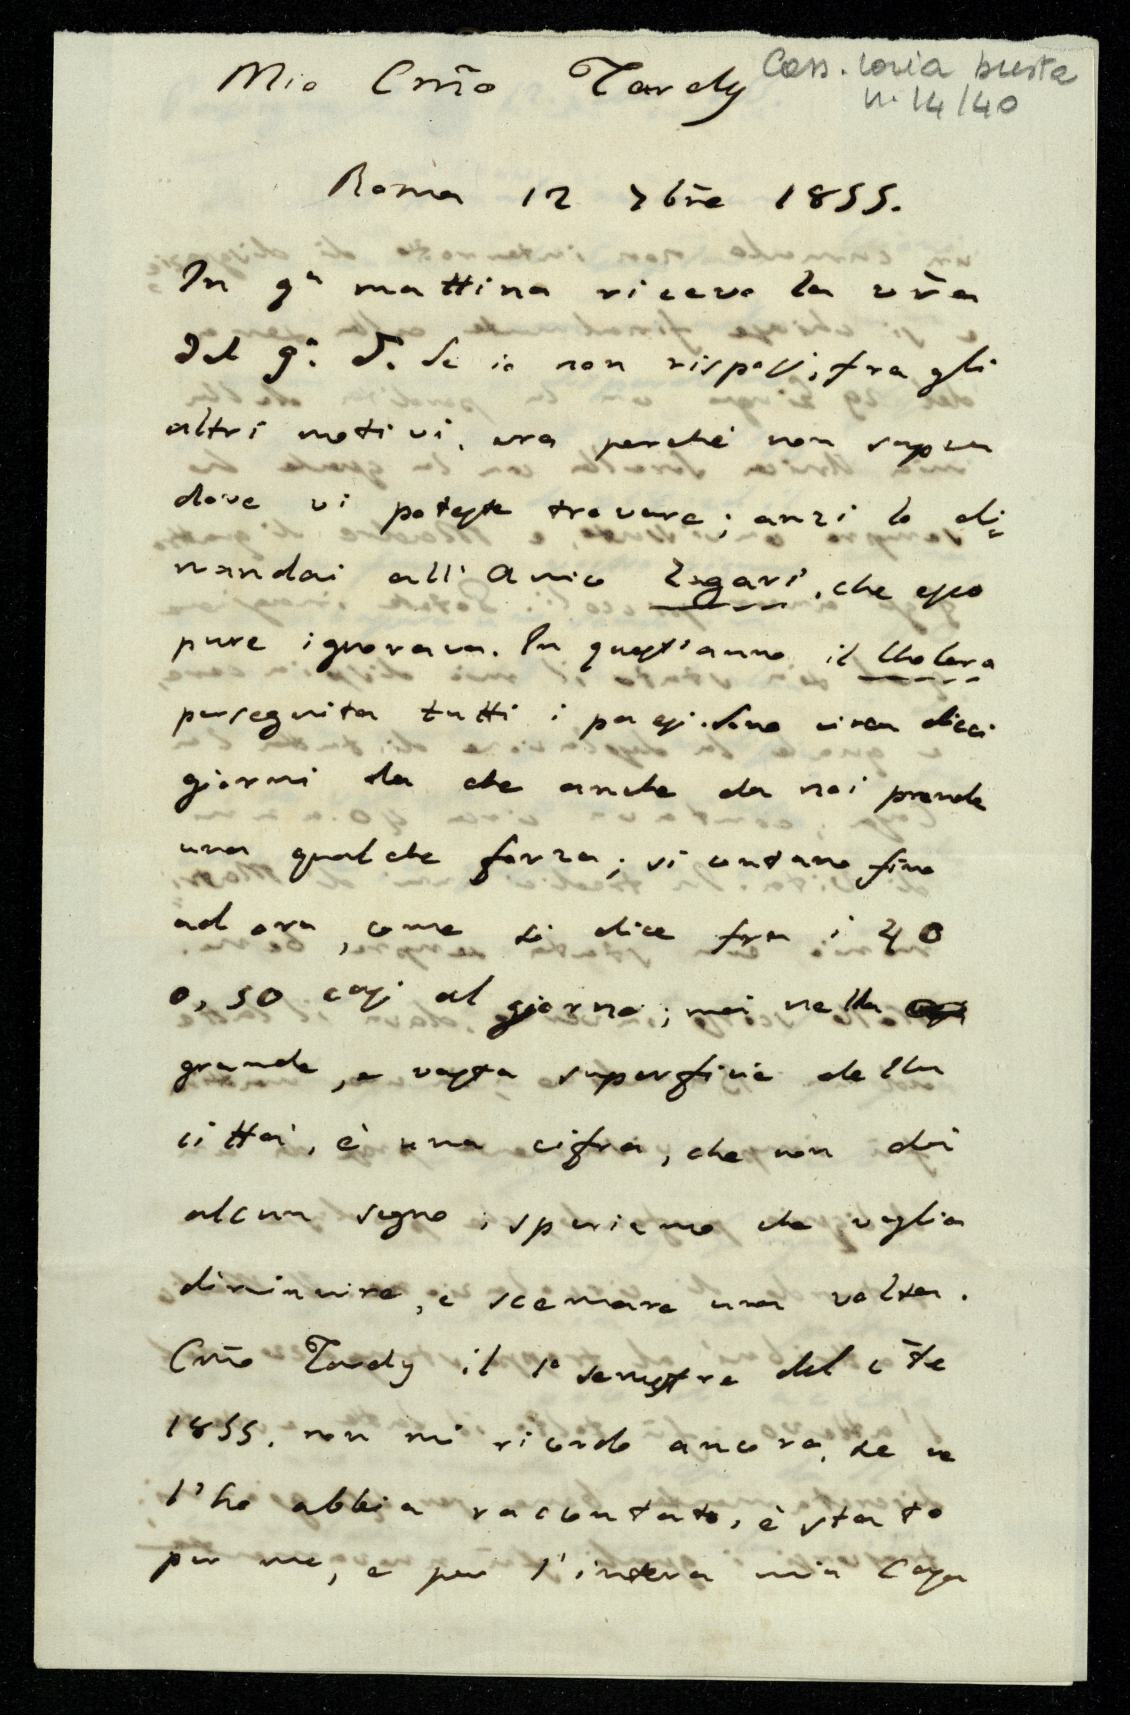 Mio Cm̃o Tardy
Cass. Loria busta
n. 14/40
Roma 12 7br̃e 1855.
In qa mattina ricevo la vr̃a
del g.o 5. Se io non risposi, fra gli
altri motivi, era perché non sapea
dove vi poteste trovare; anzi lo di=
mandai all'Amico Zogari, che esso
pure ignorava. In quest'anno il Cholera
perseguita tutti i paesi. Sono circa dieci
giorni da che anche da noi prende
una qualche forza; si contano fino
ad ora, come si dice fra i 40
o, 50 casi al giorno; mai nella
grande, e vasta superficie della
città, è una cifra, che non dà
alcun segno; speriamo che voglia
diminuire, e scemare una volta.
Cm̃o Tardy il 1o semestre del c̃te
1855. non mi ricordo ancora, se ve
l'ho abbia raccontato, è stato
per me, e per l'intera mia Casa